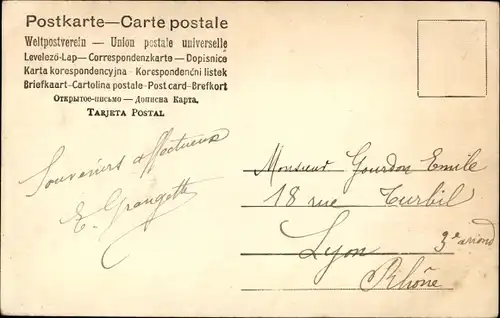 Postkarte — Carte postale
Weltpostverein — Union postale universelle
Levelező-Lap — Correspondenzkarte — Dopisnice
Karta korespondencyjna - Korespondenční listek
Briefkaart - Cartolina postale - Post card - Brefkort
Открытое-письмо — Дописна Карта.
TARJETA POSTAL
Souvenirs affectueux
E. Grangette
Monsieur Gourdon Emile
18 rue Turbil
Lyon 3e arrond
Rhône